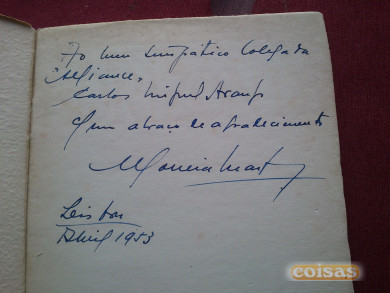 Ao meu simpático Colega da
Alliance,
Carlos Miguel Araujo
com um abraço de agradecimento
Moreira
Lisboa
Abril 1953
coisas